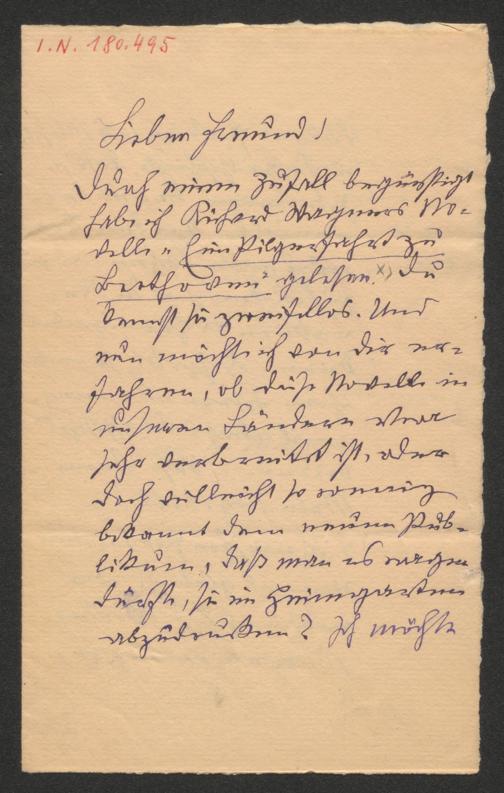 I.N. 180.495
Lieber Freund!
Durch einen Zufall begünstigt
habe ich Richard Wagners No-
velle „Eine Pilgerfahrt zu
Beethoven“ gelesen. x) Du
kennst sie zweifellos. Und
nun möchte ich von dir er-
fahren, ob diese Novelle in
unseren Ländern
sehr verbreitet ist, oder
doch vielleicht so wenig
bekannt dem neuen Pub-
likum, daß man es wagen
dürfte, sie im Heimgarten
abzudrucken? Ich möchte